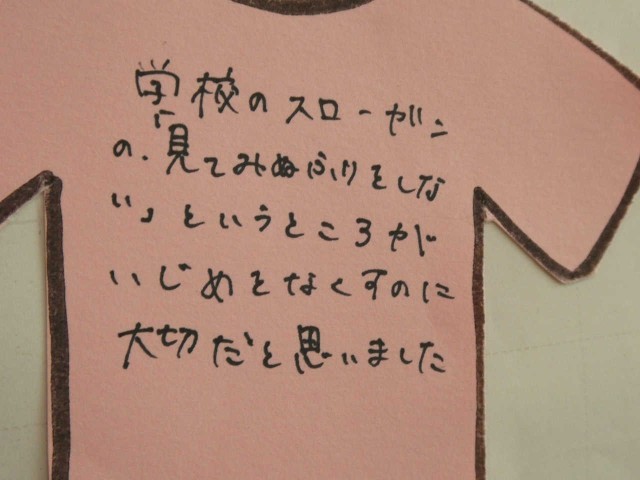 学校のスローガン
の、「見てみぬふりをしな
い」というところが
いじめをなくすのに
大切だと思いました